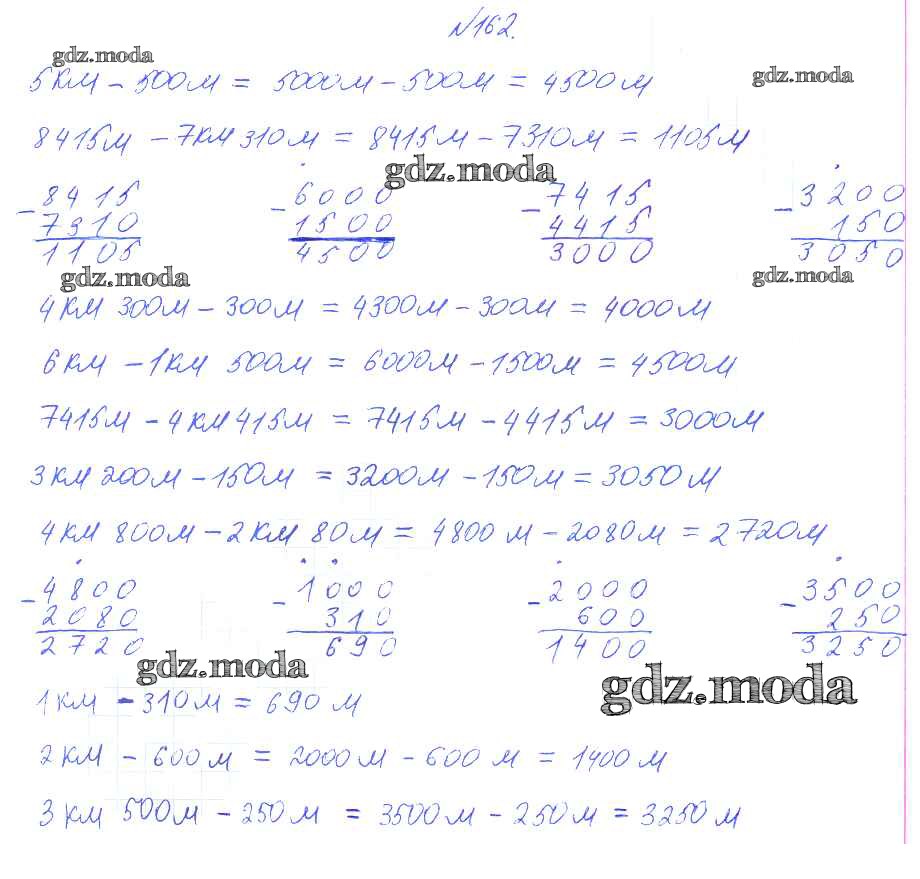 №162.
gdz.moda
5км - 500м = 5000м - 500м = 4500м
gdz.moda
8415м - 7км 310м = 8415м - 7310м = 1105м
gdz.moda
- 8415 - 6000 - 7415 - 3200
7310 1500 4415 150
1105 4500 3000 3050
gdz.moda gdz.moda
4км 300м - 300м = 4300м - 300м = 4000м
6км - 1км 500м = 6000м - 1500м = 4500м
7415м - 4км 415м = 7415м - 4415м = 3000м
3км 200м - 150м = 3200м - 150м = 3050м
4км 800м - 2км 80м = 4800м - 2080м = 2720м
- 4800 - 1000 - 2000 - 3500
2080 310 600 250
2720 690 1400 3250
gdz.moda gdz.moda
1км - 310м = 690м
2км - 600м = 2000м - 600м = 1400м
3км 500м - 250м = 3500м - 250м = 3250м